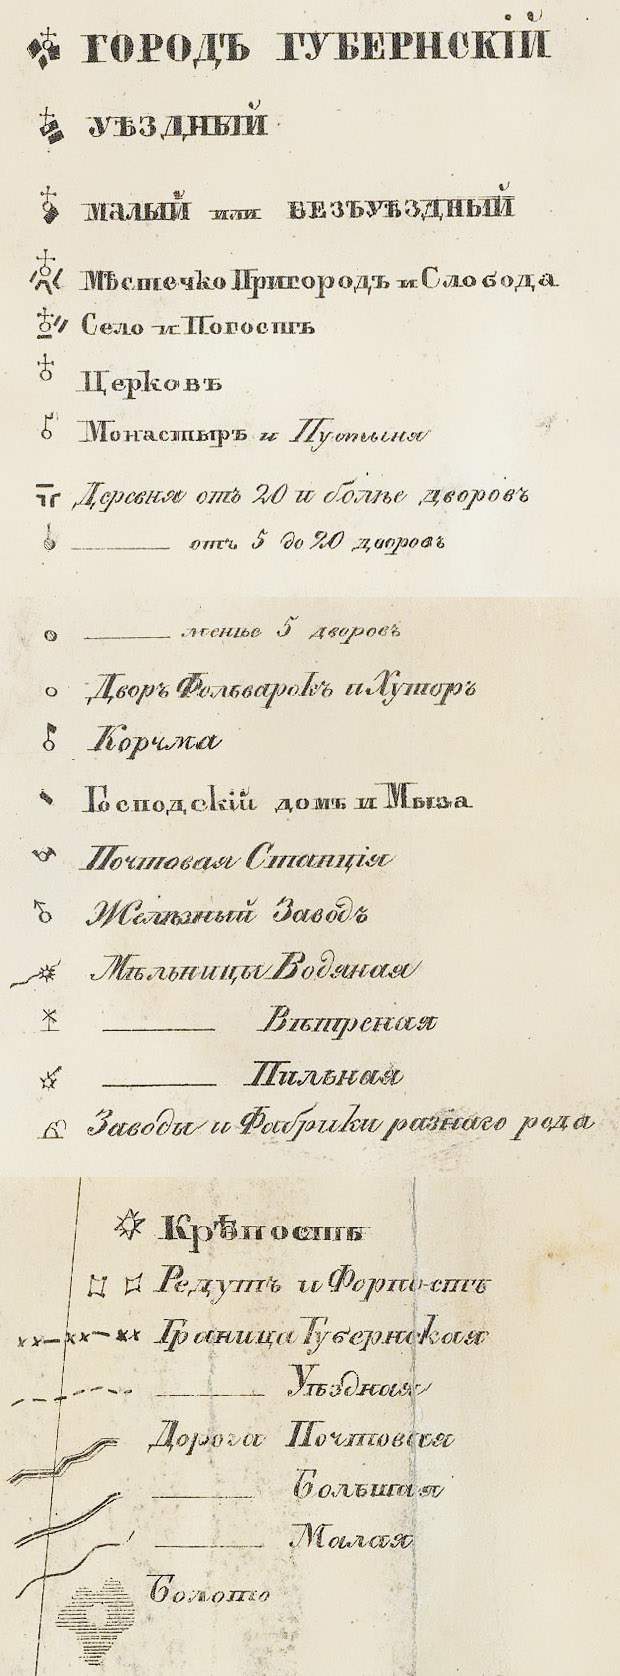 ГОРОДЪ ГУБЕРНСКІЙ
УѢЗДНЫЙ
МАЛЫЙ или БЕЗЪУѢЗДНЫЙ
Мѣстечко Пригородъ и Слобода
Село и Погостъ
Церковь
Монастырь и Пустыня
Деревня отъ 20 и болѣе дворовъ
отъ 5 до 20 дворовъ
менѣе 5 дворовъ
Дворъ Фольварокъ и Хуторъ
Корчма
Господскій домъ и Мыза
Почтовая Станція
Желѣзный Заводъ
Мѣльницы Водяная
Вѣтреная
Пильная
Заводы и Фабрики разнаго рода
Крѣпость
Редутъ и Форпостъ
Граница Губернская
Уѣздная
Дорога Почтовая
Большая
Малая
Болото